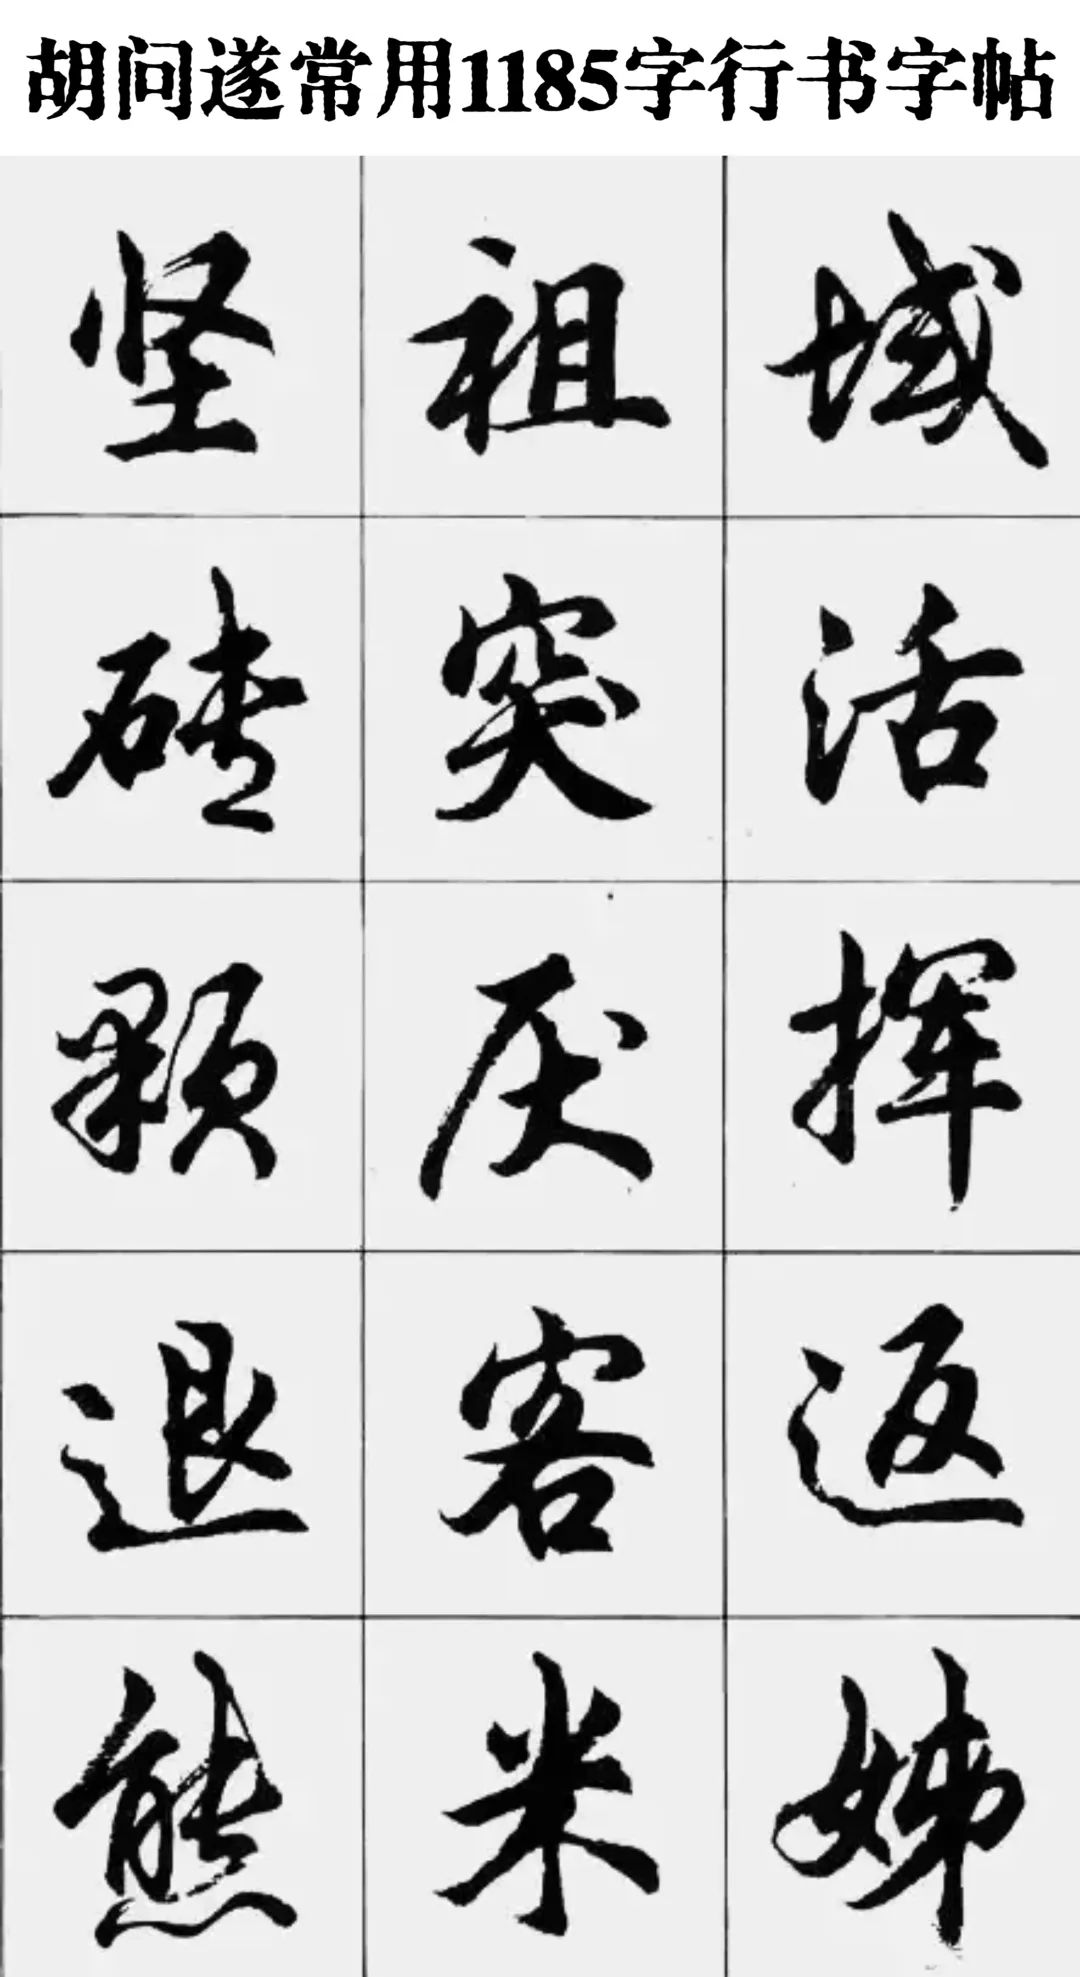 胡问遂常用1185字行书字帖
坚祖域
砖突活
颗厌挥
退客返
熊米姊